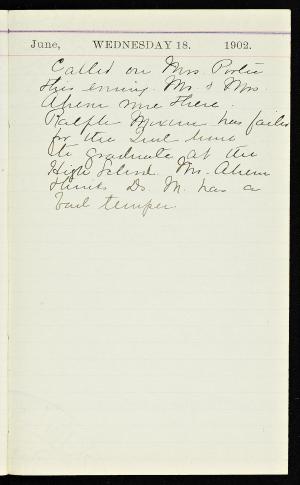 June, WEDNESDAY 18. 1902.
Called on Mrs. Porter
this evening. Mr. & Mrs
Ahern were there.
Ralph has failed
for the 2nd time
to graduate at the
High School. Mrs. Ahern
thinks Dr. M. has a
bad temper.